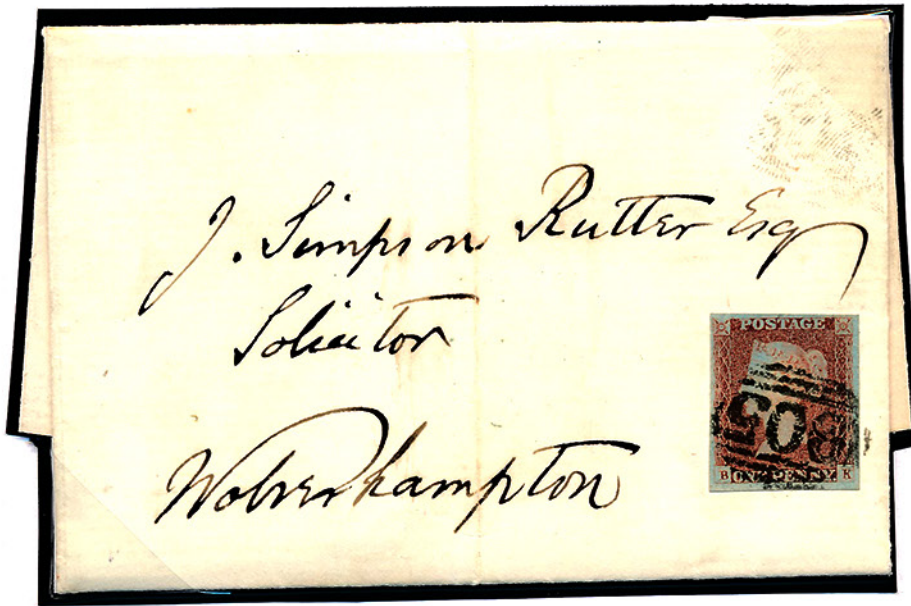 J. Simpson Rutter Esq
Solicitor
Wolverhampton
POSTAGE
508
B ONE PENNY K